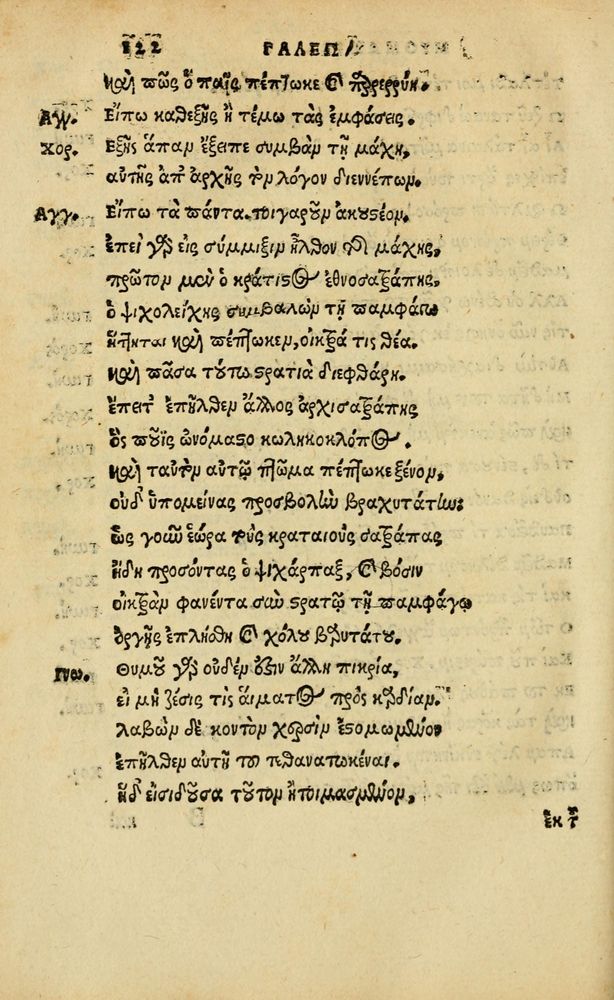 122 ΓΑΛΕΩ
καὶ πῶς ὁ παῖς πέπτωκε καὶ
Αγγ. Εἴπω καθεξῆς ἢ τέμω τὰς ἐμφάσεις.
Χορ. Εξῆς ἅπαν ἔξειπε συμβὰν τῇ μάχῃ,
αὐτῆς ἀπ' ἀρχῆς τὸν λόγον διεννέπων.
Αγγ. Εἴπω τὰ πάντα. τοιγαροῦν ἀκουστέον.
ἐπεὶ γὰρ εἰς σύμμιξιν ἦλθον μάχης,
πρῶτον μὲν ὁ κράτιστος ἐθνοσατράπης,
ὁ ψιχολείχης συμβαλὼν τῇ παμφάγῳ
ἥττηται καὶ πέπτωκεν, οἰκτρά τις θέα.
καὶ πᾶσα τούτου στρατιὰ διεφθάρη.
ἔπειτ' ἐπῆλθεν ἄλλος ἀρχισατράπης
ὃς τοὔπις ὠνόμαστο κωληκοκλόπος.
καὶ ταὐτὸν αὐτῷ πτῶμα πέπτωκε ξένον,
οὐδ' ὑπομείνας προσβολὴν βραχυτάτην:
ὡς γοῦν ἑώρα τοὺς κραταιοὺς σατράπας
ἤδη προσόντας ὁ ψιχάρπαξ, καὶ βόσιν
οἰκτρὰν φανέντα σὺν στρατῷ τῇ παμφάγῳ
ὀργῆς ἐπλήσθη καὶ χόλου βαρυτάτου.
Γνω. Θυμοῦ γὰρ οὐδέν ἐστιν ἄλλη πικρία,
εἰ μὴ ζέσις τις αἵματος πρὸς καρδίαν.
λαβὼν δὲ κοντὸν χερσὶν ἐστομωμένον
ἐπῆλθεν αὐτῇ τοῦ τεθανατωκέναι.
ἡ δ' εἰσιδοῦσα τοῦτον ἡτοιμασμένον,
ἐκ τ